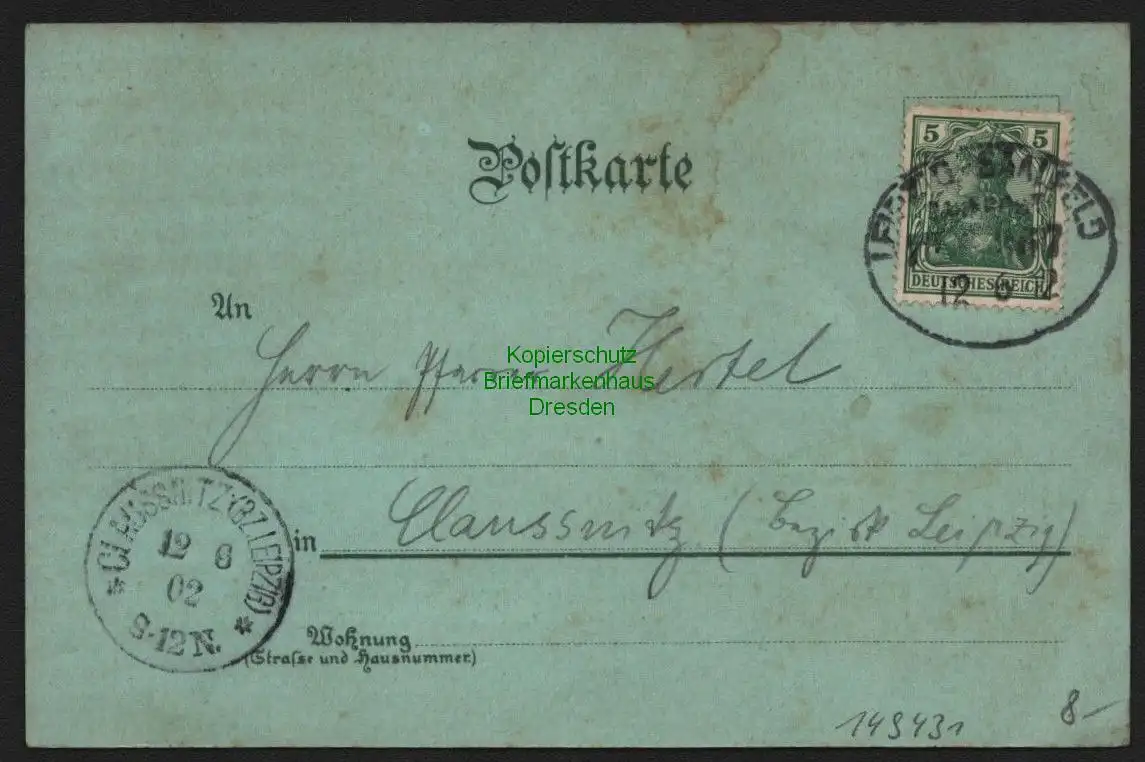 Postkarte
5 5
DEUTSCHES REICH
12 6
An
Herrn Pfarrer Hertel
Kopierschutz
Briefmarkenhaus
Dresden
in Claussnitz (Bezirk Leipzig)
CLAUSSNITZ (BZ. LEIPZIG)
12 6
02
9-12 N.
Wohnung
(Strasse und Hausnummer)
149431
8-